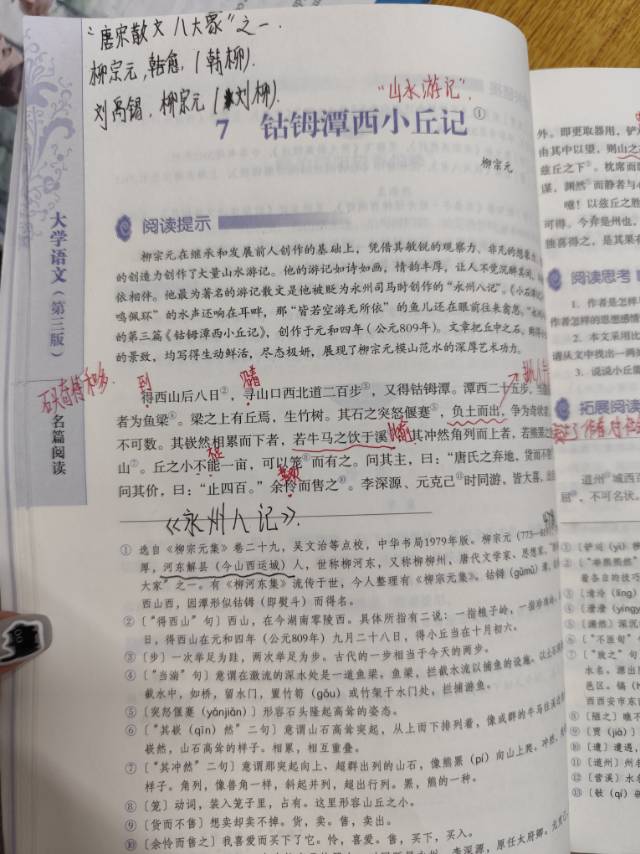 “唐宋散文八大家”之一.
柳宗元,韩愈,(韩柳).
刘禹锡,柳宗元(刘柳).
“山水游记”.
7 钴鉧潭西小丘记①
柳宗元
大学语文(第三版)
名篇阅读
阅读提示
柳宗元在继承和发展前人创作的基础上,凭借其敏锐的观察力、非凡的想象
的创造力创作了大量山水游记。他的游记如诗如画,情韵丰厚,让人不觉沉醉其间
依相伴。他最为著名的游记散文是他被贬为永州司马时创作的“永州八记”。《小石
鸣佩环”的水声还响在耳畔,那“皆若空游无所依”的鱼儿还在眼前往来翕忽。
的第三篇《钴鉧潭西小丘记》,创作于元和四年(公元809年)。文章把丘中之石
的景致,均写得生动鲜活,尽态极妍,展现了柳宗元模山范水的深厚艺术功力。
石头奇特和多.
到
得西山后八日②,寻山口西北道二百步③,又得钴鉧潭。潭西二十五步,
者为鱼梁④。梁之上有丘焉,生竹树。其石之突怒偃蹇⑤,负土而出,争为奇状
不可数。其嵚然相累而下者,若牛马之饮于溪⑥;其冲然角列而上者,若熊罴
山⑦。丘之小不能一亩,可以笼⑧而有之。问其主,曰:“唐氏之弃地,货而不售
问其价,曰:“止四百。”余怜而售之⑩。李深源、元克己⑪时同游,皆大喜,
《永州八记》.
① 选自《柳宗元集》卷二十九,吴文治等点校,中华书局1979年版。柳宗元(773—
厚,河东解县(今山西运城)人,世称柳河东,又称柳柳州,唐代文学家、思想家,
大家”之一。有《柳河东集》流传于世,今人整理有《柳宗元集》。钴鉧(gǔmǔ)潭,
西山西,因潭形似钴鉧(即熨斗)而得名。
② [“得西山”句]西山,在今湖南零陵西。具体所指有二说:一指粮子岭,一指
日,得西山在元和四年(公元809年)九月二十八日,得小丘当在十月初六。
③ [步]一次举足为跬,两次举足为步。古代的一步相当于今天的两步。
④ [“当湍”句]意谓在激流的深水处是一道鱼梁。鱼梁,拦截水流以捕鱼的设施,以土石
截水中,如桥,留水门,置竹笱(gǒu)或竹架于水门处,拦捕游鱼。
⑤ [突怒偃蹇(yǎnjiǎn)]形容石头隆起高耸的姿态。
⑥ [“其嵚(qīn)然”二句]意谓山石高耸突起,从上而下排列着,像成群的牛马往溪边
嵚然,山石高耸的样子。相累,相互重叠。
⑦ [“其冲然”二句]意谓那突起向上、超群出列的山石,像熊罴(pí)向山上爬。冲然,
样子。角列,像兽角一样,斜起并列,超出行列。罴,熊的一种。
⑧ [笼]动词,装入笼子里,占有。这里形容山丘之小。
⑨ [货而不售]想卖却卖不掉。货,卖。售,卖出。
⑩ [余怜而售之]我喜爱而买下了它。怜,喜爱。售,买下,买入。
外。即更取器用,铲
由其中以望,则山之
兹丘之下⑤。枕席而
谋,渊然⑤而静者与
噫!以兹丘之胜
可得。今弃是州也,
独喜得之,是其果
阅读思考
1. 作者是怎样
作者怎样的思想感情
2. 本文采用比
请从文中找出一两
3. 说说小丘
拓展阅读
道州①城西百